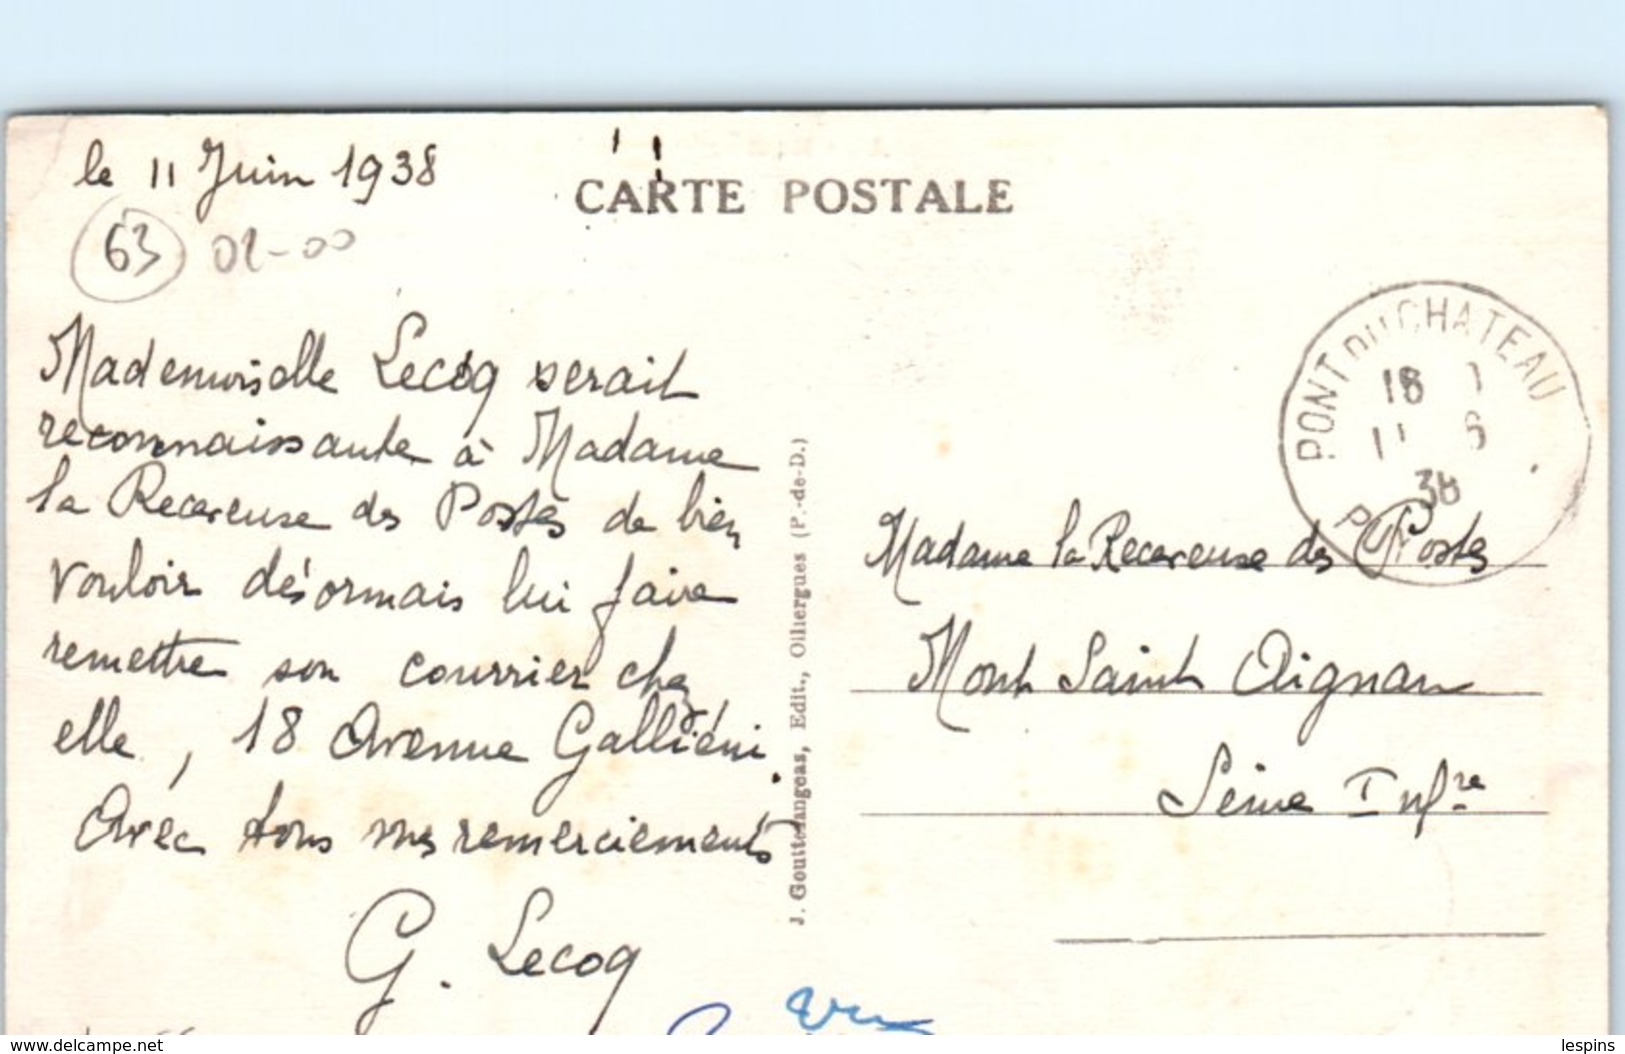 le 11 Juin 1938
CARTE POSTALE
63 02-00
Mademoiselle Lecoq serait
reconnaissante à Madame
la Receveuse des Postes de bien
vouloir désormais lui faire
remettre son courrier chez
elle, 18 Avenue Galliéni.
Avec tous mes remerciements
G. Lecoq
J. Gouttefangeas, Edit., Olliergues (P.-de-D.)
PONT DU CHATEAU
18
11 6
38
Madame la Receveuse des Postes
Mont Saint Aignan
Seine Infre
www.delcampe.net
lespins